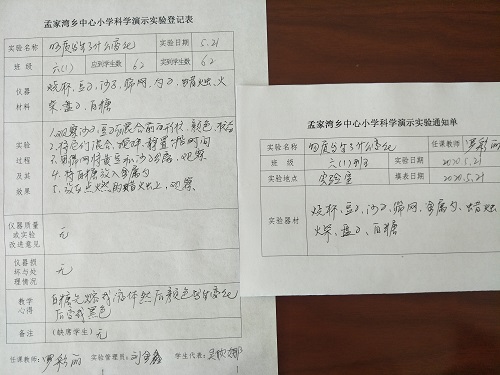 孟家湾乡中心小学科学演示实验登记表
实验名称 物质发生了什么变化 实验日期 5.21
班级 六(1) 应到学生数 62 实到学生数 62
仪器材料 烧杯、豆子、沙子、筛网、勺子、蜡烛、火柴、盘子、白糖
实验过程及其效果
1、观察沙子、豆子混合前的形状、颜色、状态
2、将它们混合、搅拌、静置一段时间
3、用筛网将黄豆和沙子分离、观察
4、将白糖放入金属勺
5、放在点燃的蜡烛火上、观察
仪器质量或实验改进意见 无
仪器损坏与处理情况 无
教学心得 白糖先熔成液体然后颜色发生变化
后变成黑色
备注 (缺席学生) 无
任课教师: 罗彩丽 实验管理员: 学生代表:
孟家湾乡中心小学科学演示实验通知单
任课教师 罗彩丽
实验名称 物质发生了什么变化
班级 六(1)班 实验日期 2020.5.21
实验地点 实验室 填表日期 2020.5.21
实验器材 烧杯、豆子、沙子、筛网、金属勺、蜡烛
火柴、盘子、白糖